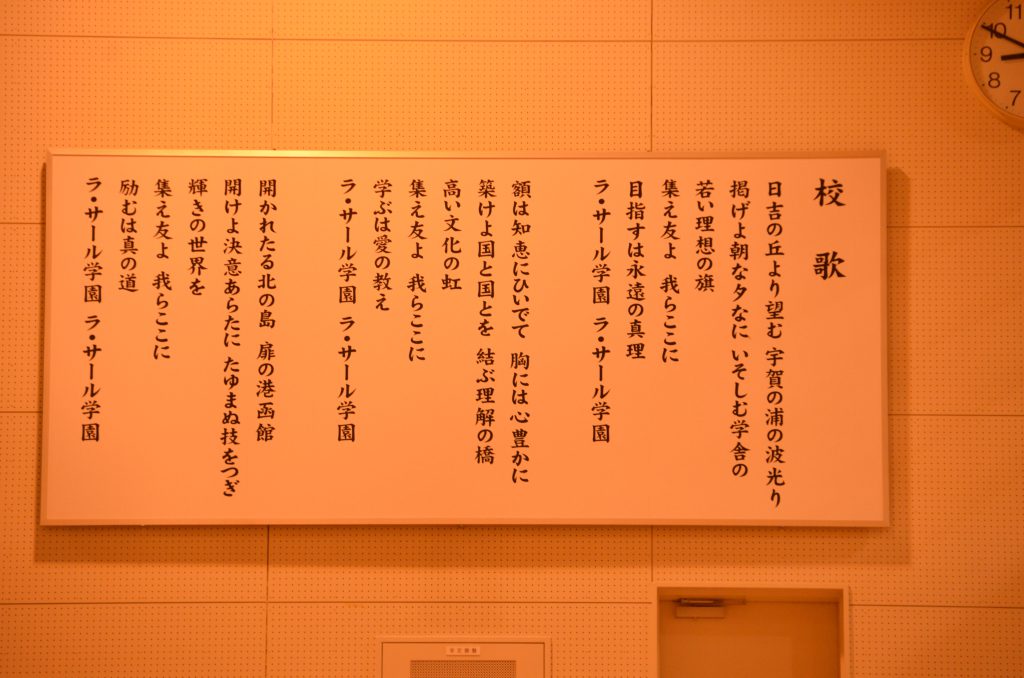 校歌
日吉の丘より望む 宇賀の浦の波光り
掲げよ朝な夕なに いそしむ学舎の
若い理想の旗
集え友よ 我らここに
目指すは永遠の真理
ラ・サール学園 ラ・サール学園
額は知恵にひいでて 胸には心豊かに
築けよ国と国とを 結ぶ理解の橋
高い文化の虹
集え友よ 我らここに
学ぶは愛の教え
ラ・サール学園 ラ・サール学園
開かれたる北の島 扉の港函館
開けよ決意あらたに たゆまぬ技をつぎ
輝きの世界を
集え友よ 我らここに
励むは真の道
ラ・サール学園 ラ・サール学園
11
10
9
8
7